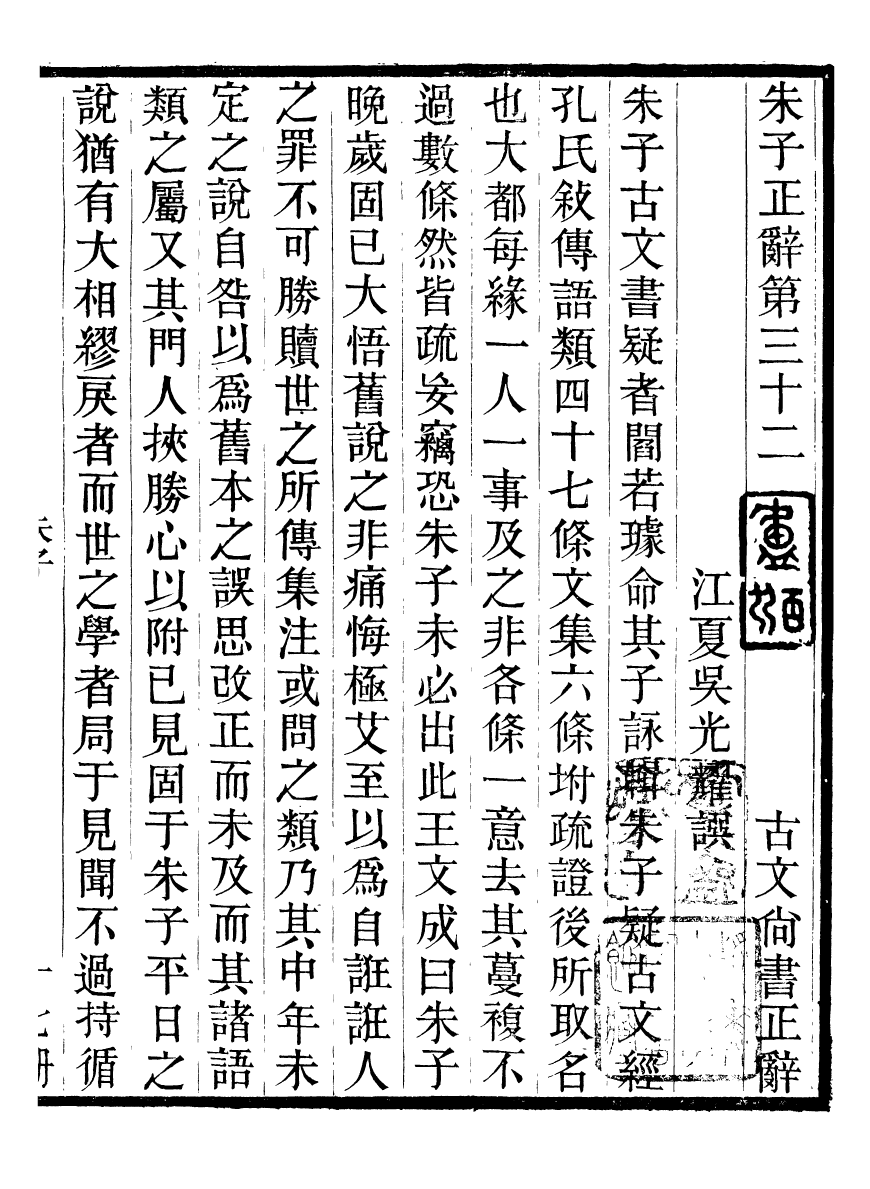 朱子正辭第三十二 古文尚書正辭
江夏吳光耀譔
朱子古文書疑者閻若璩命其子詠輯朱子疑古文經
孔氏敍傳語類四十七條文集六條坿疏證後所取名
也大都每緣一人一事及之非各條一意去其蔓複不
過數條然皆疏妄竊恐朱子未必出此王文成曰朱子
晚歲固已大悟舊說之非痛悔極艾至以爲自誑誑人
之罪不可勝贖世之所傳集注或問之類乃其中年未
定之說自咎以爲舊本之誤思改正而未及而其諸語
類之屬又其門人挾勝心以附已見固于朱子平日之
說猶有大相繆戾者而世之學者局于見聞不過持循